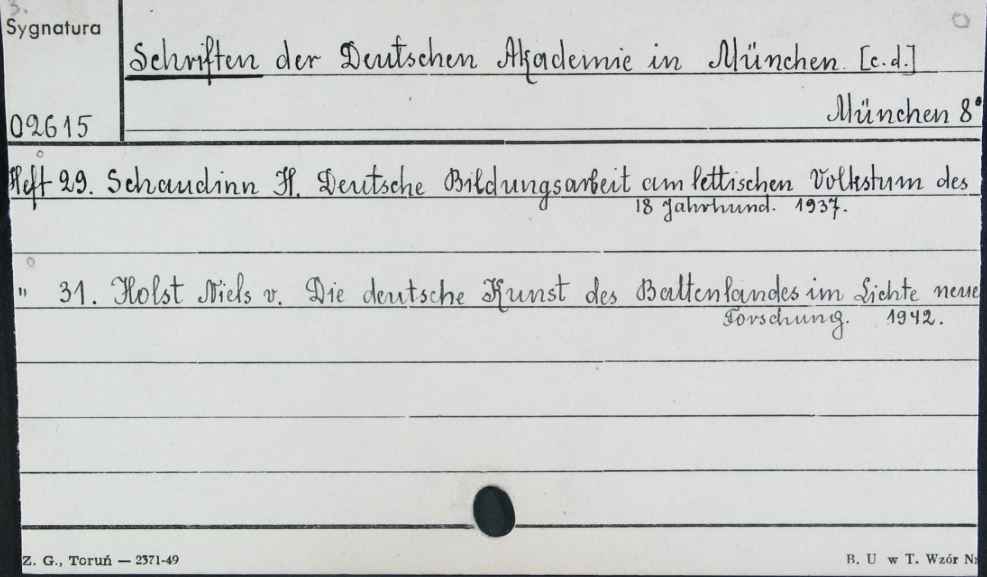 3.
Sygnatura
Schriften der Deutschen Akademie in München [c.d.]
München 8°
02615
Heft 29. Schaudinn H. Deutsche Bildungsarbeit am lettischen Volkstum des
18 Jahrhund. 1937.
" 31. Holst Niels v. Die deutsche Kunst des Baltenlandes im Lichte neue
Forschung. 1942.
Z. G., Toruń — 2371-49
B. U w T. Wzór N